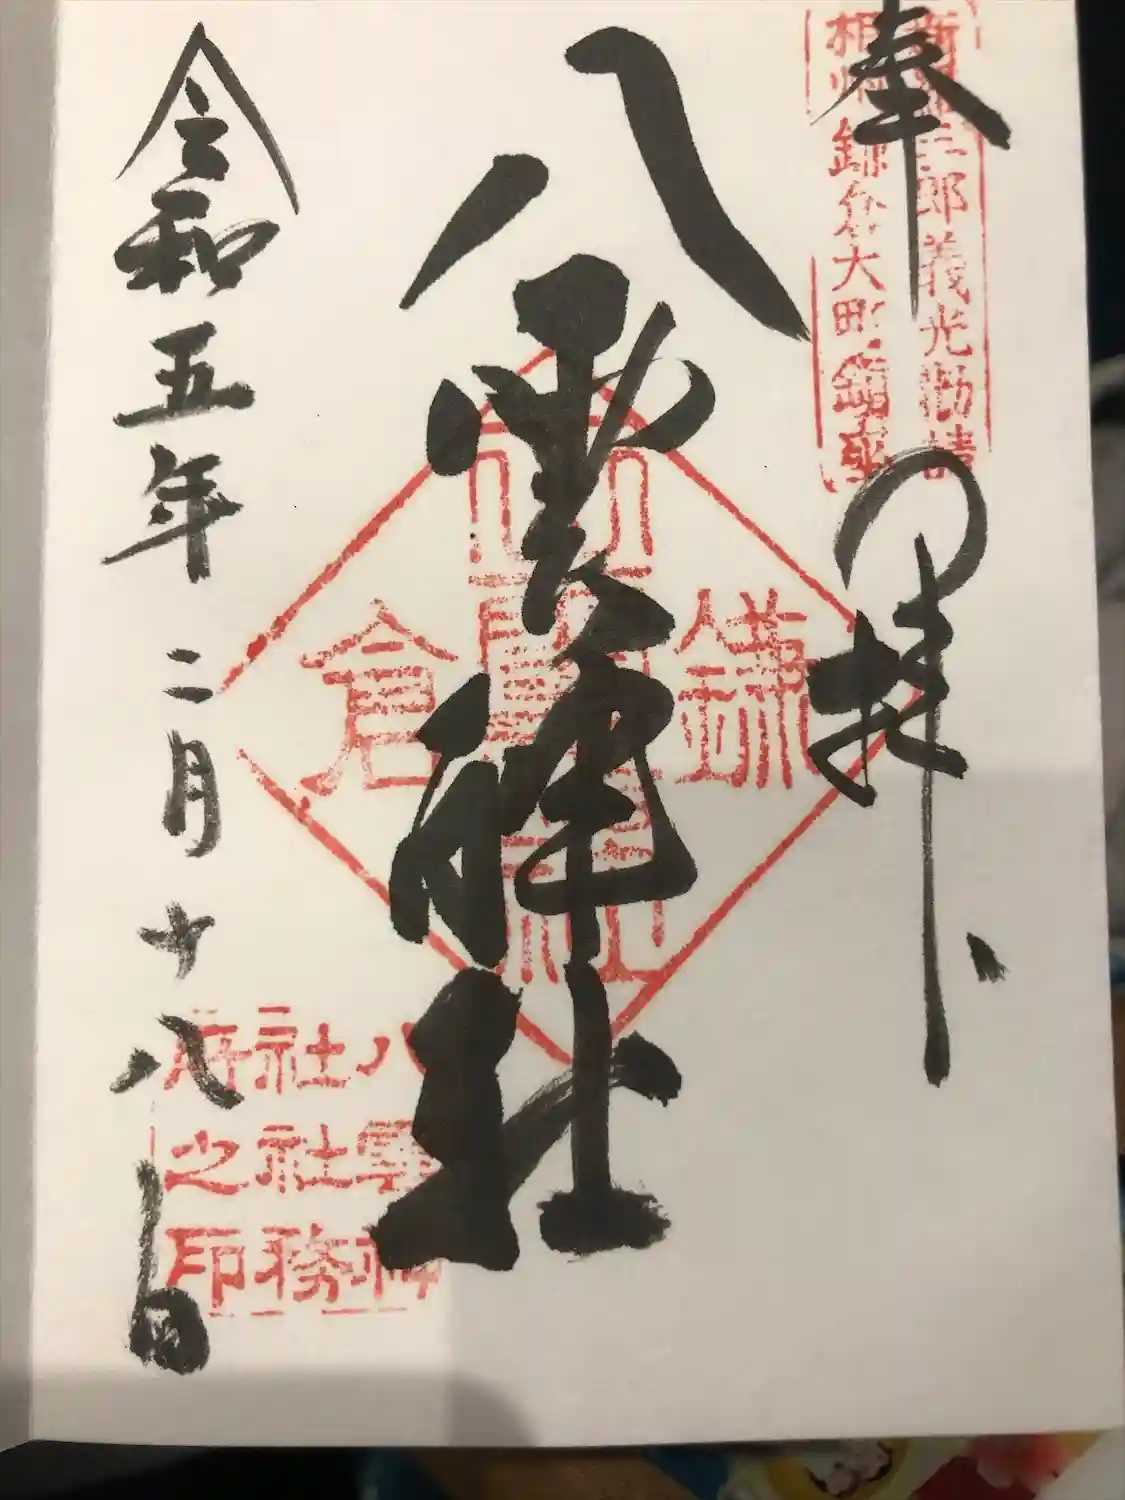 奉拝
新羅三郎義光勧請
相州鎌倉大町鎮座
八雲神社
鎌倉
八雲神社
八雲神
社社務
所之印
令和五年二月十八日